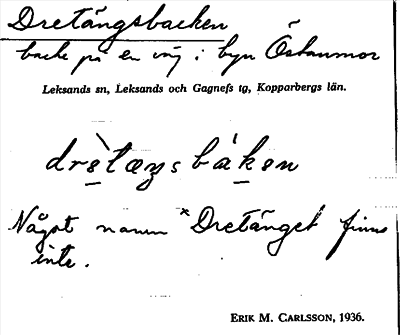 Dretängsbacken
backe på en väg i byn Östanmor
Leksands sn, Leksands och Gagnefs tg, Kopparbergs län.
drètæŋsbáken
Något namn *Dretänget finns
inte.
ERIK M. CARLSSON, 1936.